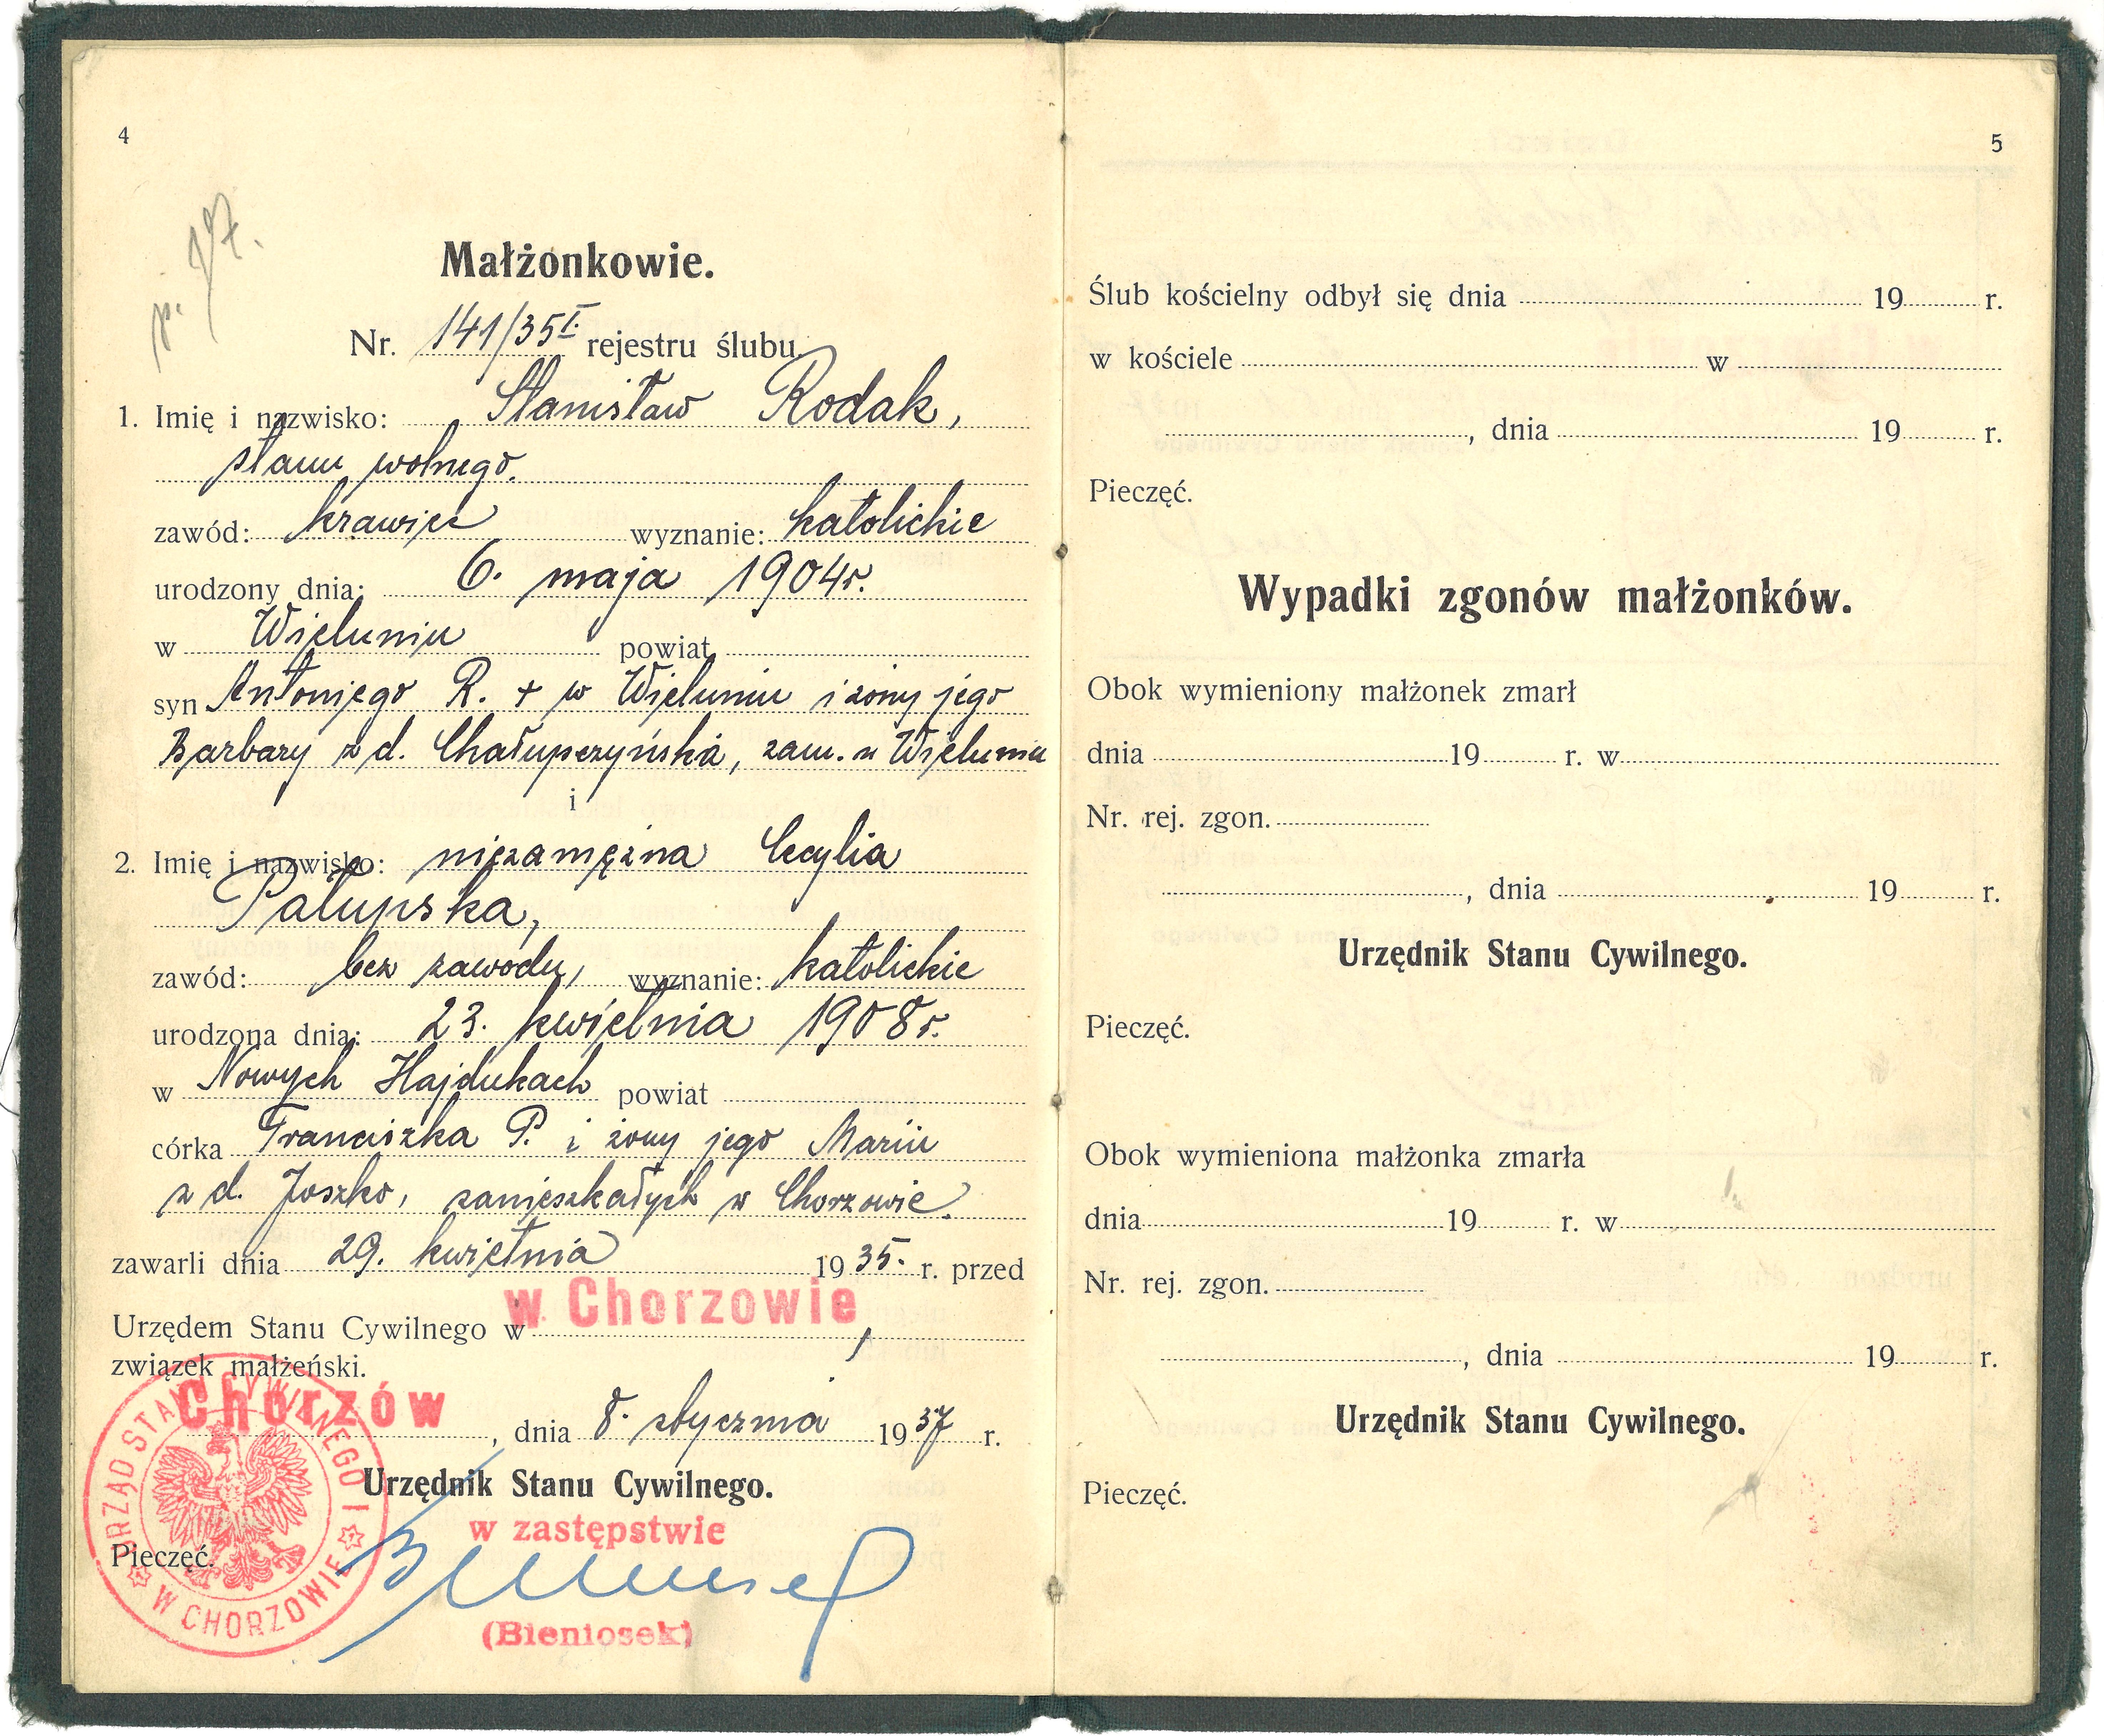 4
p. 77.
Małżonkowie.
Nr. 141/35 I. rejestru ślubu.
1. Imię i nazwisko: Stanisław Rodak,
stanu wolnego.
zawód: krawiec wyznanie: katolickie
urodzony dnia: 6. maja 1904 r.
w Wieluniu powiat
syn Antoniego R. + w Wieluniu i żony jego
Barbary z d. Chałupczyńska, zam. w Wieluniu
i
2. Imię i nazwisko: niezamężna Cecylia
Patupska,
zawód: bez zawodu, wyznanie: katolickie
urodzona dnia: 23. kwietnia 1908 r.
w Nowych Hajdukach powiat
córka Franciszka P. i żony jego Marii
z d. Joszko, zamieszkałych w Chorzowie.
zawarli dnia 29. kwietnia 1935. r. przed
Urzędem Stanu Cywilnego w w Chorzowie,
związek małżeński.
Chorzów, dnia 8. stycznia 1937 r.
Urzędnik Stanu Cywilnego.
w zastępstwie
Pieczęć.
(Bieniosek)
URZĄD STANU CYWILNEGO I W CHORZOWIE
5
Ślub kościelny odbył się dnia 19 r.
w kościele w
, dnia 19 r.
Pieczęć.
Wypadki zgonów małżonków.
Obok wymieniony małżonek zmarł
dnia 19 r. w
Nr. rej. zgon.
, dnia 19 r.
Urzędnik Stanu Cywilnego.
Pieczęć.
Obok wymieniona małżonka zmarła
dnia 19 r. w
Nr. rej. zgon.
, dnia 19 r.
Urzędnik Stanu Cywilnego.
Pieczęć.